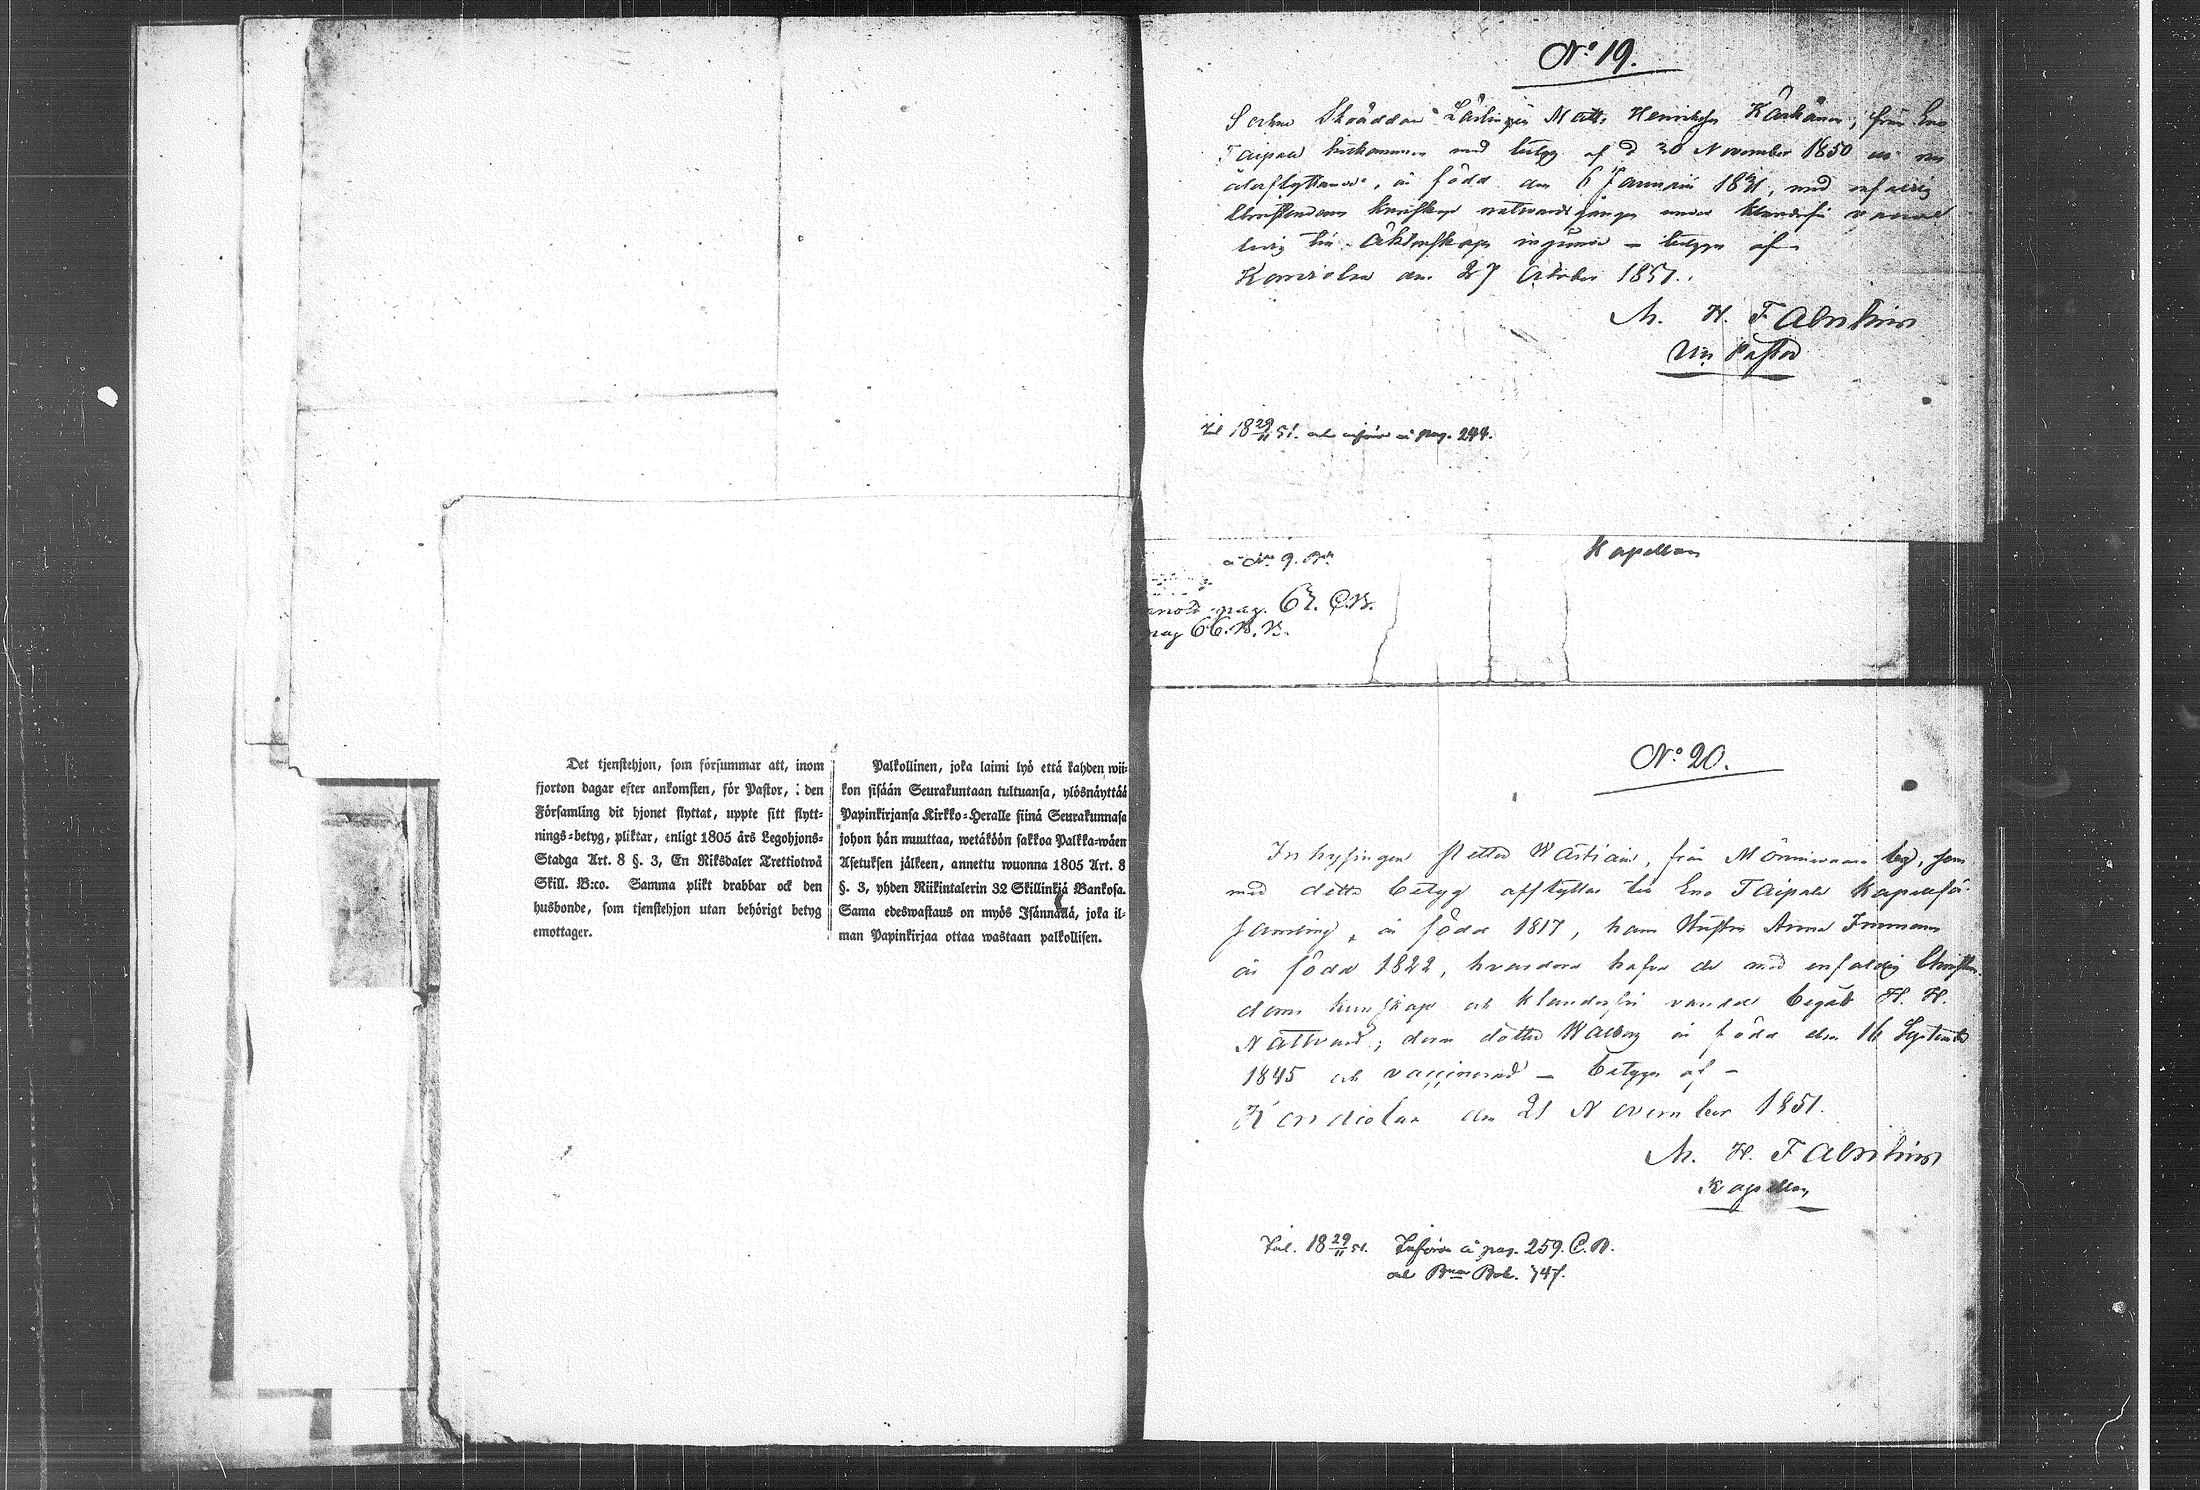 Det tjenstehjon, som försummar att, inom
fjorton dagar efter ankomsten, för Pastor, i den
Församling dit hjonet flyttat, uppte sitt flytt-
nings-betyg, pliktar, enligt 1805 års Legohjons-
Stadga Art. 8 §. 3, En Riksdaler Trettiotwå
Skill. B:co. Samma plikt drabbar ock den
husbonde, som tjenstehjon utan behörigt betyg
emottager.
Palkollinen, joka laimi lyö että kahden wii-
kon sisään Seurakuntaan tultuansa, ylösnäyttää
Papinkirjansa Kirkko-Heralle siinä Seurakunnasa
johon hän muuttaa, wetäköön sakkoa Palkka-wäen
Asetuksen jälkeen, annettu wuonna 1805 Art. 8
§. 3, yhden Riikintalerin 32 Skillinkiä Bankosa.
Sama edeswastaus on myös Isännällä, joka il-
man Papinkirjaa ottaa wastaan palkollisen.
No 19.
Skräddar Lärlingen Matts Henriksson Kärkänen, från Eno
Taipale hitkommen med betyg af d 30 November 1850 är nu
återflyttande, är född den 6 Januarii 1831, med enfaldig
Christendoms kunskap nattvardsgången under klanderfri vandel
ledig till Äktenskaps ingående – betygar af
Kondiolax den 27 October 1851.
M. H. Fabritius
Vice Pastor
Inl 18 29/11 51. och införd å pag. 244.
å No 9. Bok
Kapellan
pag. 67. C.B.
pag 66. B. B.
No 20.
Inhysingen Petter Wästiäin, från Mönnivaara by, som
med detta betyg afflyttar till Eno Taipale Kapellför-
samling, är född 1817, hans Hustru Anna Immonen
är född 1822, hvardera hafva de med enfaldig Christen-
doms kunskap och klanderfri vandel begåt H. H.
Nattvard; deras dotter Walborg är född den 16 September
1845 och vaccinerad – betygar af –
Kondiolax den 21 November 1851.
M. H. Fabritius
Kapellan
Inl. 18 29/11 51. Införde å pag. 259. C. B.
och Bna Bok. 747.